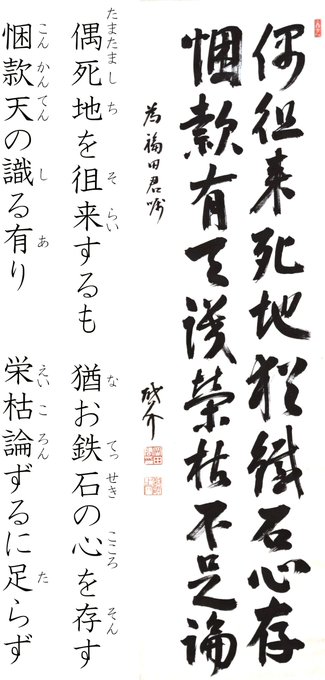 偶徂来死地猶鐵石心存
悃款有天識榮枯不足論
為福田君嘱
啓介
たまたま し ち そ らい な てっ せき こころ そん
偶死地を徂来するも 猶お鉄石の心を存す
こん かん てん し あ えい こ ろん た
悃款天の識る有り 栄枯論ずるに足らず